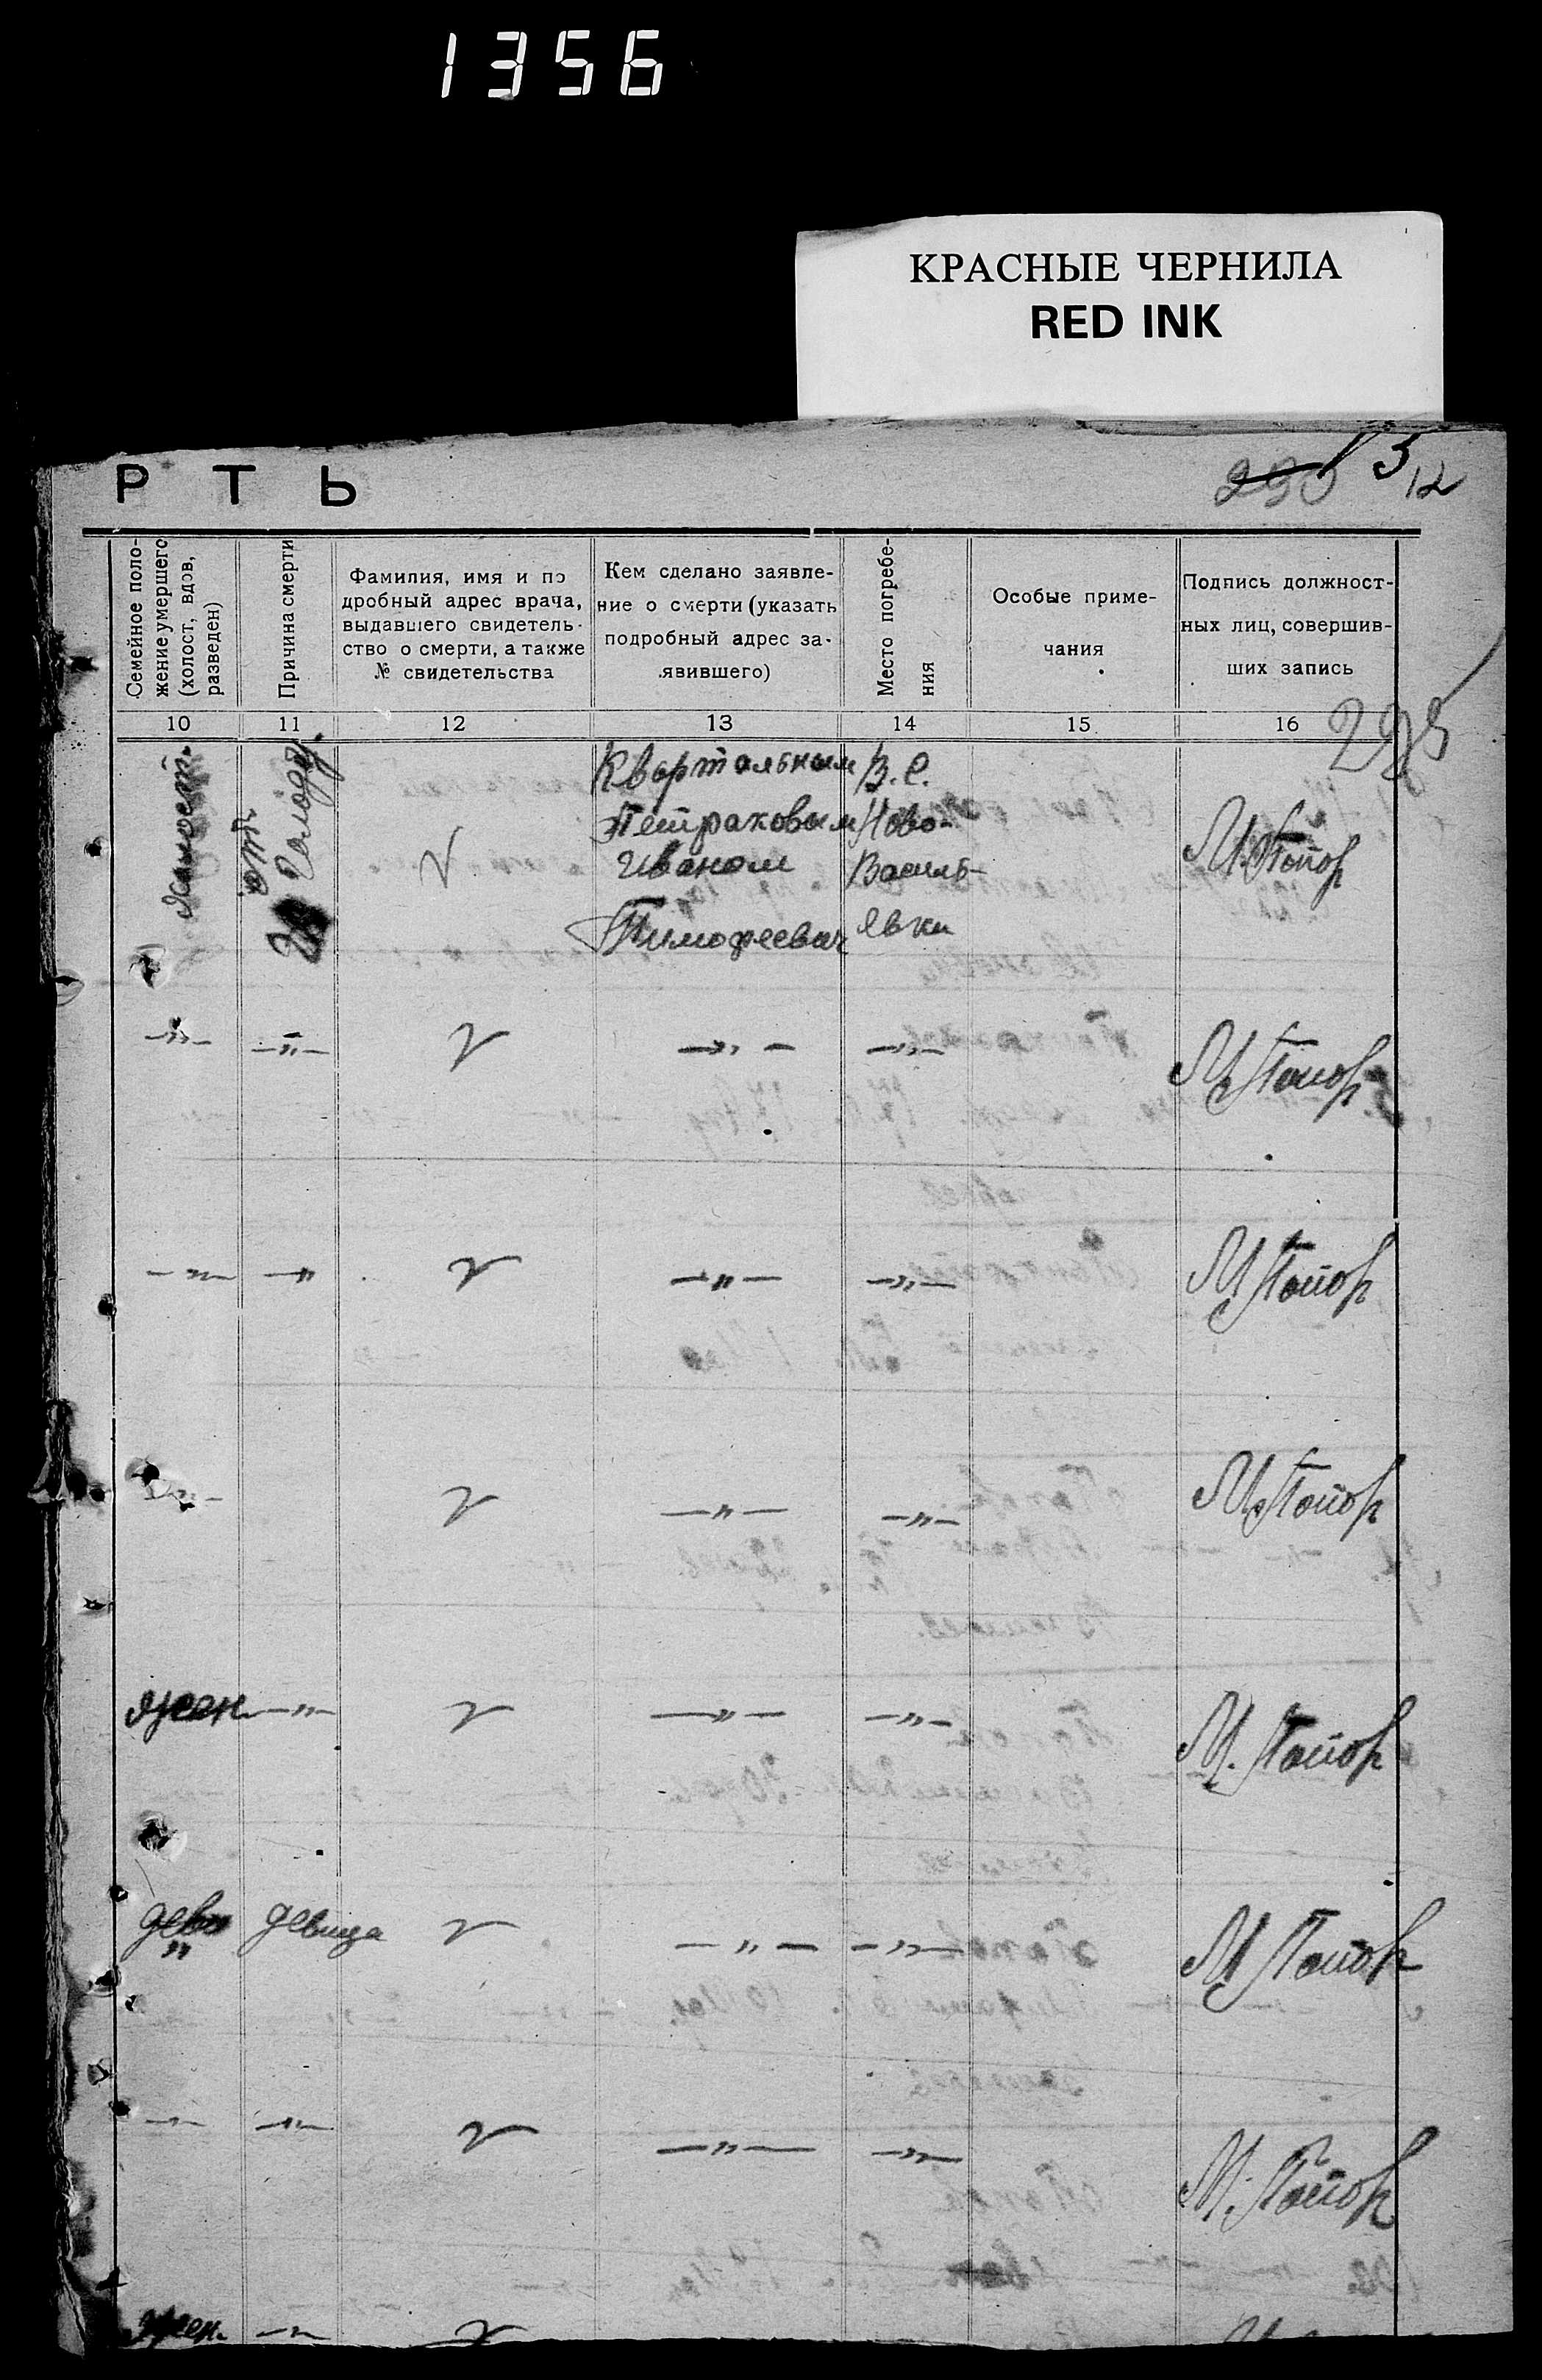 1356
КРАСНЫЕ ЧЕРНИЛА
RED INK
Р Т Ь
12
Семейное поло-
жение умершего
(холост, вдов,
разведен)
Причина смерти
Фамилия, имя и по
дробный адрес врача,
выдавшего свидетель-
ство о смерти, а также
№ свидетельства
Кем сделано заявле-
ние о смерти (указать
подробный адрес за-
явившего)
Место погребе-
ния
Особые приме-
чания
Подпись должност-
ных лиц, совершив-
ших запись
10 11 12 13 14 15 16
295
от
Голоду.
Квартальным
Петраковым
Иваном
Тимофеевич
В. С.
Ново-
Василь-
евки
М Топор
-"- -"- -"- -"- М Топор
-"- -"- -"- -"- М Топор
-"- -"- -"- М Топор
жен -"- -"- -"- М. Топор
дев девица -"- -"- М Топор
-"- -"- -"- -"- М. Топор
жен. -"-